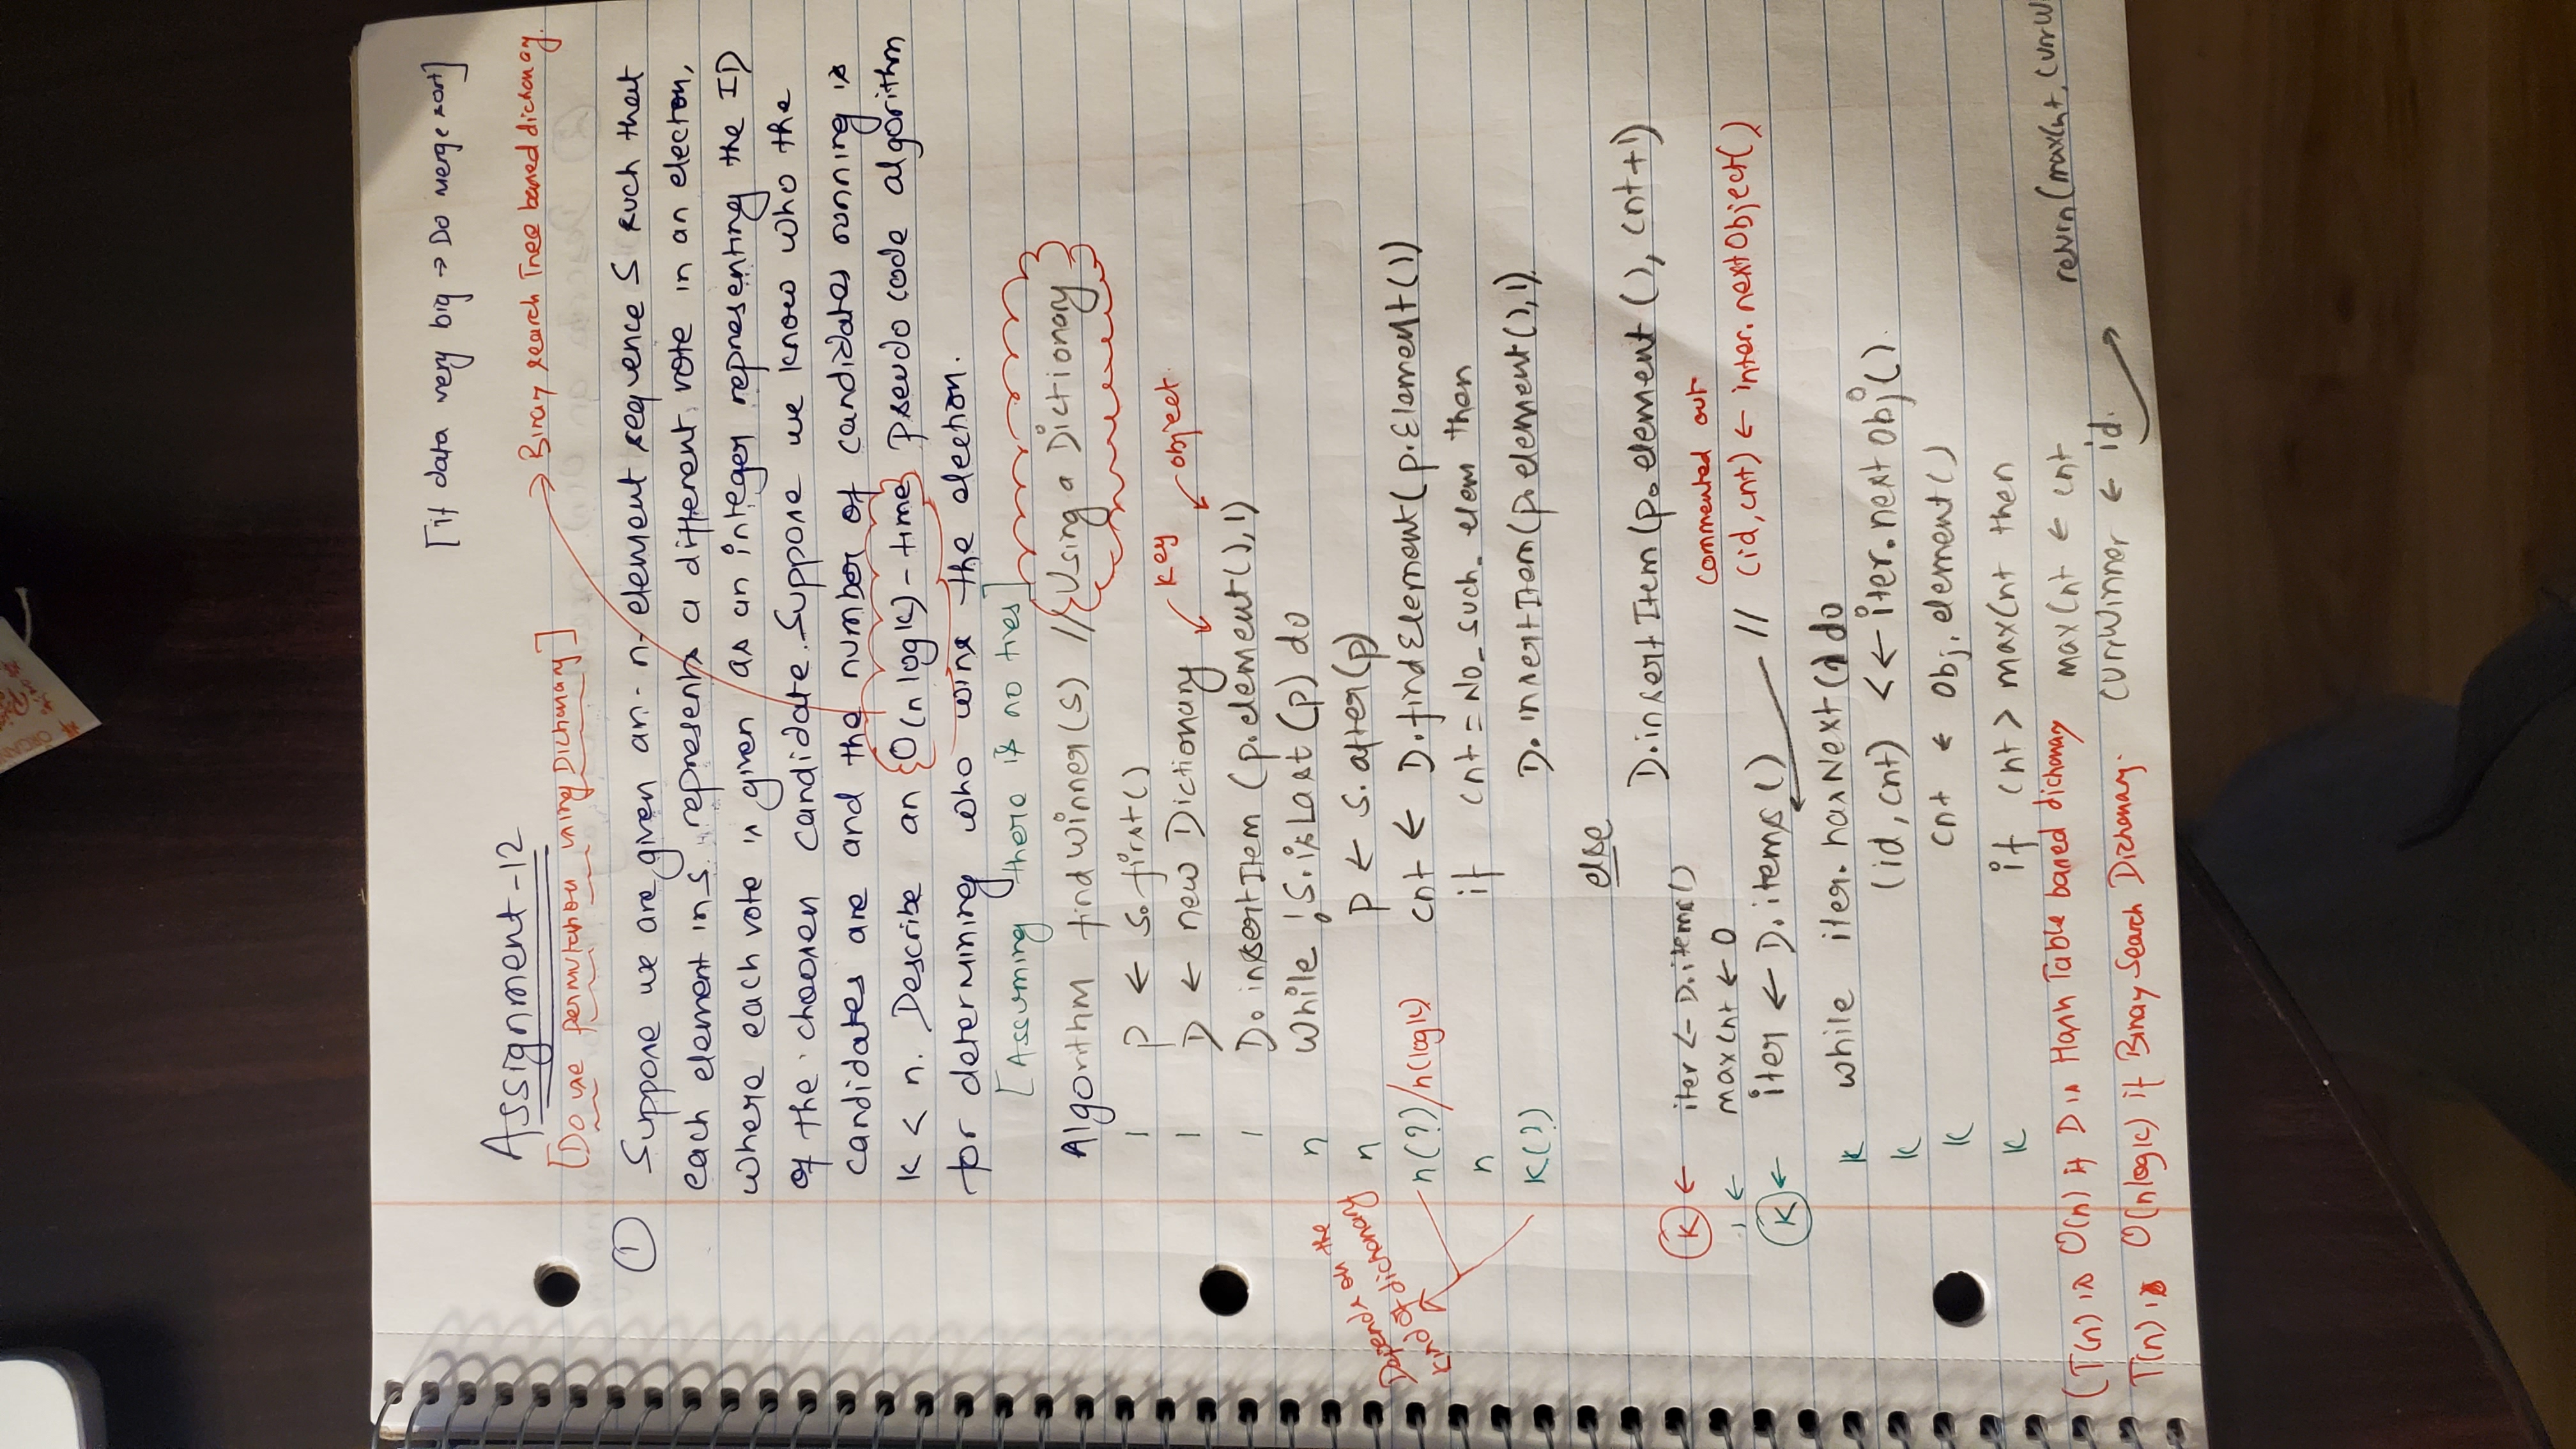 [if data very big → Do merge sort]
Assignment-12
[Do use permutation using Dictionary]
→ Binary search Tree based dictionary.
① Suppose we are given an n-element sequence S such that
each element in S represents a different vote in an electon,
where each vote is given as an integer representing the ID
of the choosen candidate. Suppose we know who the
candidates are and the number of candidates running is
K < n. Describe an {O(n logk) - time} Pseudo code algorithm
for determining who wins the election.
[Assuming there is no ties]
Algorithm find Winner(S) // {Using a Dictionary}
1 P ← S.first()
key object
1 D ← new Dictionary
1 D.insertItem (p.element(),1)
n While !S.isLast(p) do
Depends on the
kind of dictionary
n P ← S.after(p)
n(?)/n(logk) cnt ← D.findElement(p.Element())
n if cnt = No_such_elem then
K(?) D.insertItem(p.element(),1)
else
D.insertItem(p.element(), cnt+1)
K ← iter ← D.items()
1 ← maxCnt ← 0
commented out
K ← iter ← D.items() // (id,cnt) ← inter.nextObject()
K while iter.hasNext() do
K (id,cnt) <← iter.nextObj()
K cnt ← Obj.element()
K if cnt > maxCnt then
(T(n) is O(n) if D is Hash Table based dictionary
maxCnt ← cnt
return(maxCnt, CurrW
T(n) is O(nlogk) if Binary Search Dictionary.
CurrWinner ← id.